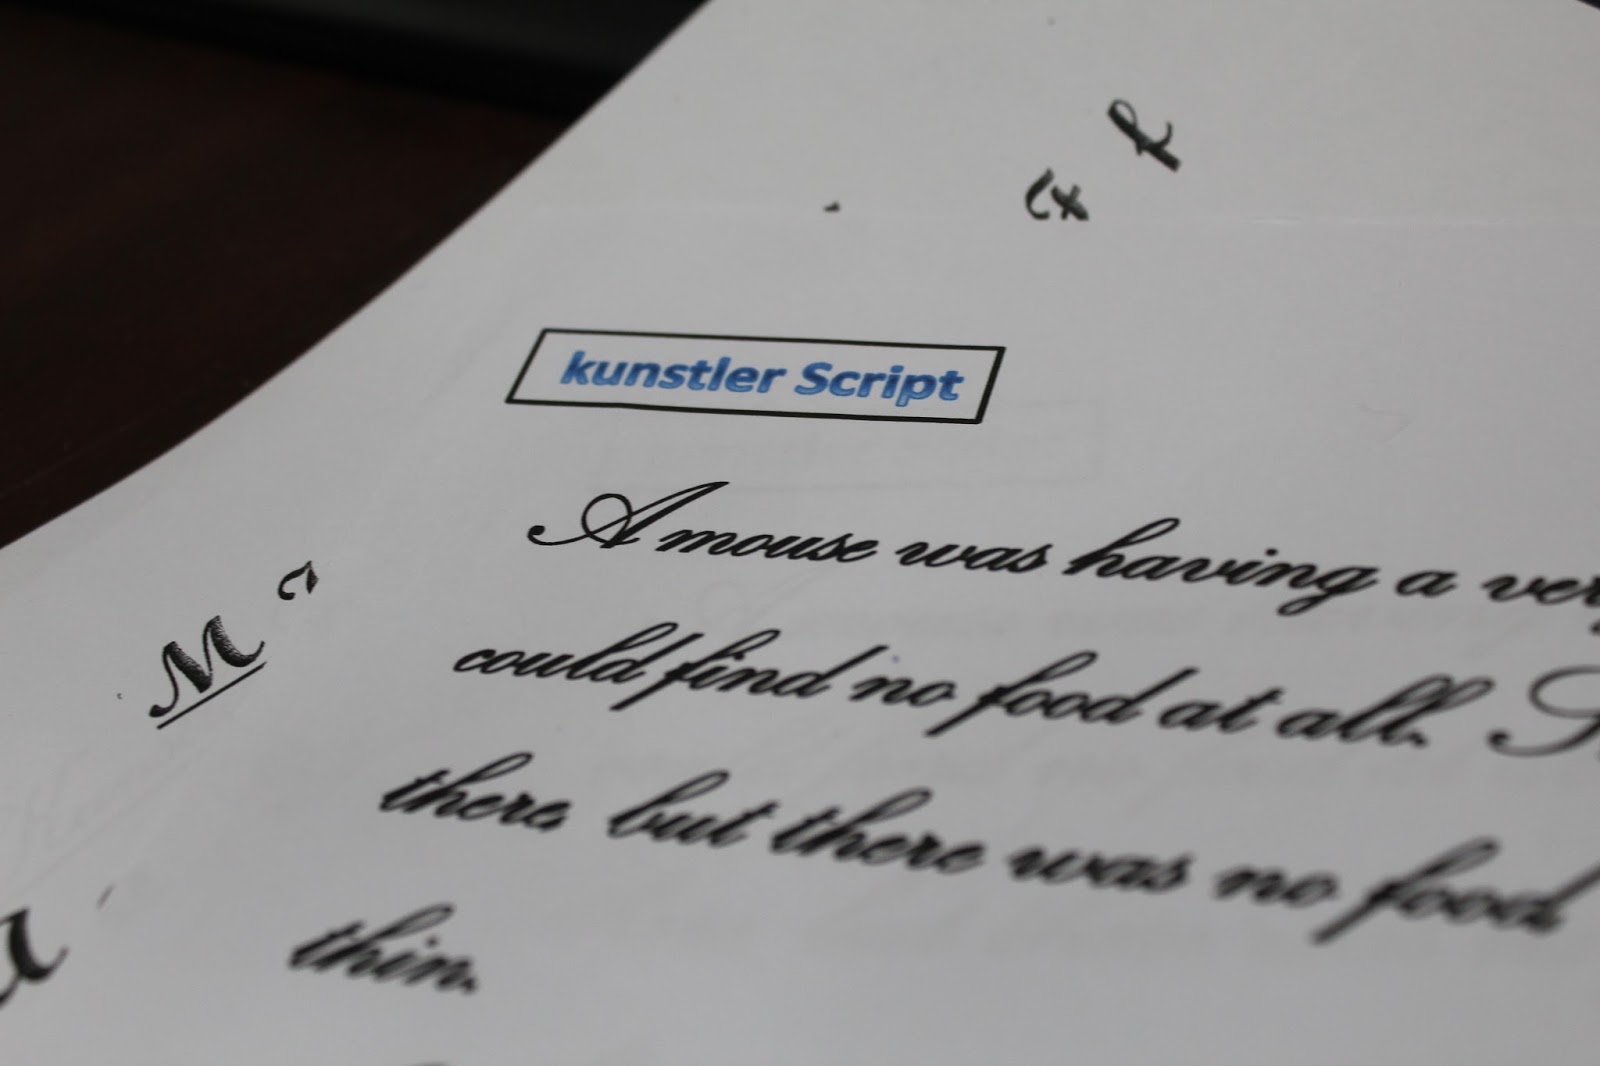 kunstler Script
A mouse was having a ver
could find no food at all.
there, but there was no food
thin.
M